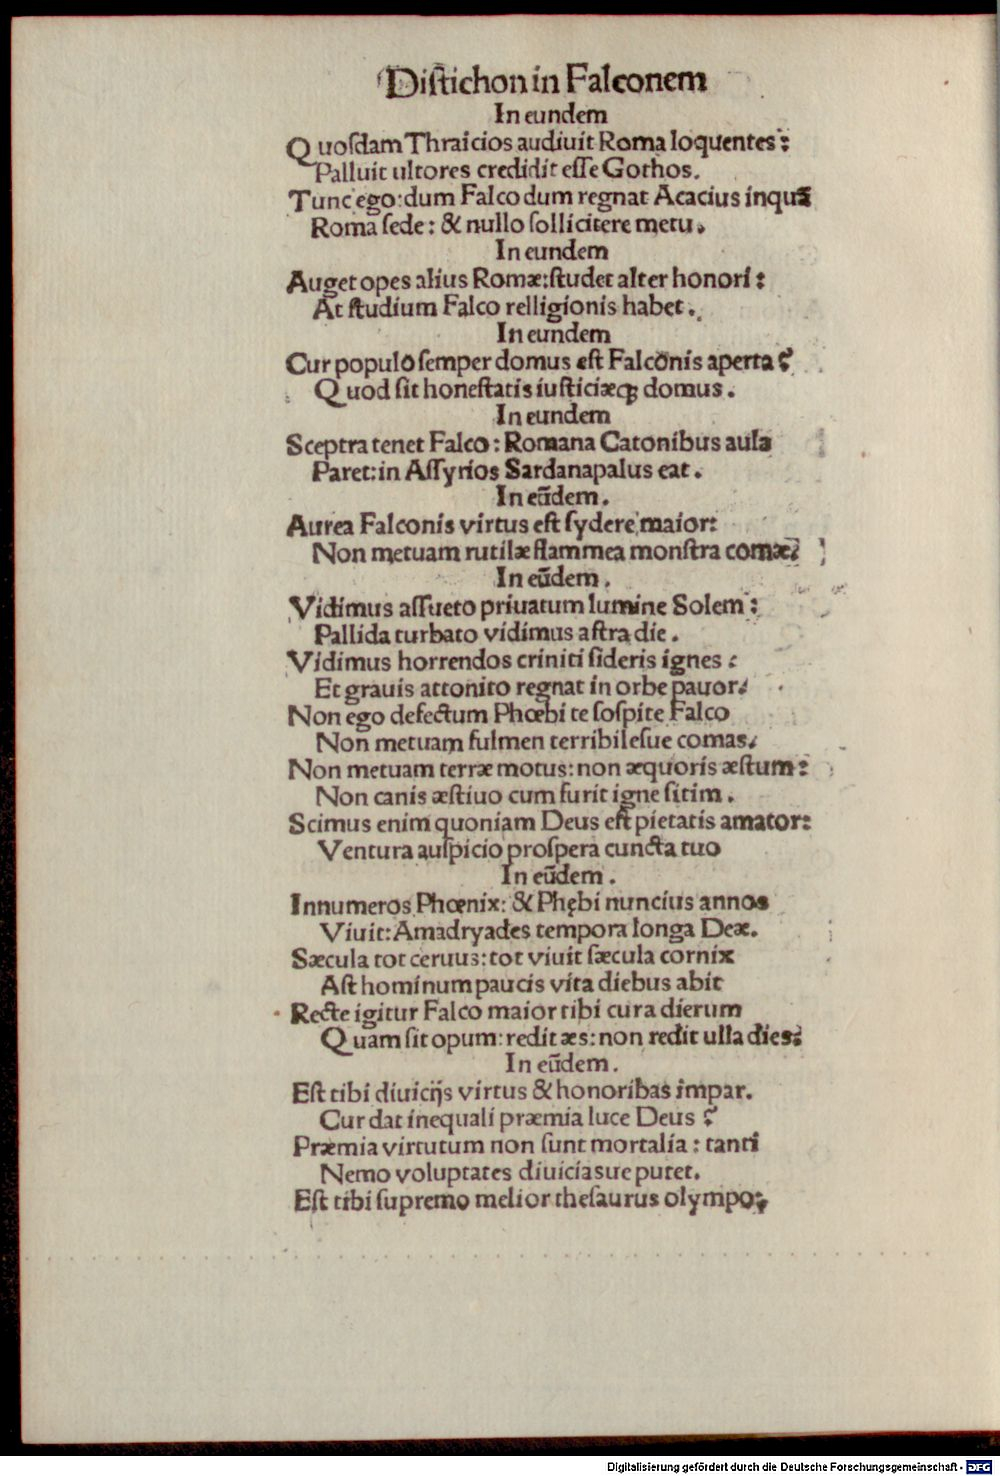 Diſtichon in Falconem
In eundem
Quoſdam Thraicios audiuit Roma loquentes:
Palluit ultores credidit eſſe Gothos.
Tunc ego: dum Falco dum regnat Acacius inquā
Roma ſede: & nullo ſollicitere metu.
In eundem
Auget opes alius Romæ: ſtudet alter honori:
At ſtudium Falco relligionis habet.
In eundem
Cur populo ſemper domus eſt Falconis aperta?
Quod ſit honeſtatis iuſticiæqꝫ domus.
In eundem
Sceptra tenet Falco: Romana Catonibus aula
Paret: in Aſſyrios Sardanapalus eat.
In eūdem.
Aurea Falconis virtus eſt ſydere maior:
Non metuam rutilæ flammea monſtra comæ.
In eūdem.
Vidimus aſſueto priuatum lumine Solem:
Pallida turbato vidimus aſtra die.
Vidimus horrendos criniti ſideris ignes:
Et grauis attonito regnat in orbe pauor.
Non ego defectum Phœbi te ſoſpite Falco
Non metuam fulmen terribileſue comas.
Non metuam terræ motus: non æquoris æſtum:
Non canis æſtiuo cum furit igne ſitim.
Scimus enim quoniam Deus eſt pietatis amator:
Ventura auſpicio proſpera cuncta tuo
In eūdem.
Innumeros Phœnix: & Phębi nuncius annos
Viuit: Amadryades tempora longa Deæ.
Sæcula tot ceruus: tot viuit ſæcula cornix
Aſt hominum paucis vita diebus abit
Recte igitur Falco maior tibi cura dierum
Quam ſit opum: redit æs: non redit ulla dies.
In eūdem.
Eſt tibi diuicijs virtus & honoribas impar.
Cur dat inequali præmia luce Deus?
Præmia virtutum non ſunt mortalia: tanti
Nemo voluptates diuiciasue putet.
Eſt tibi ſupremo melior theſaurus olympo:
Digitalisierung gefördert durch die Deutsche Forschungsgemeinschaft - DFG